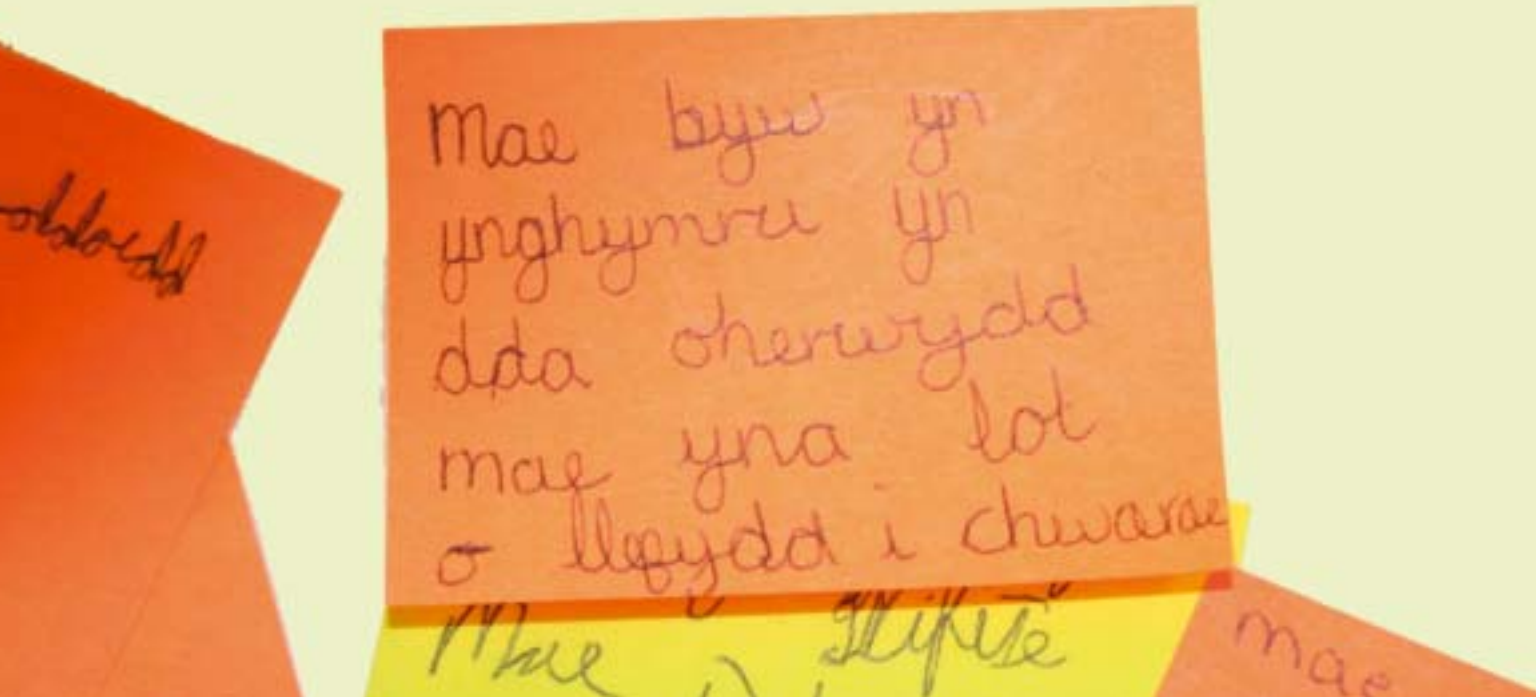 Mae byw yn
ynghymru yn
dda oherwydd
mae yna lot
o llefydd i chwarae
Mae
mae